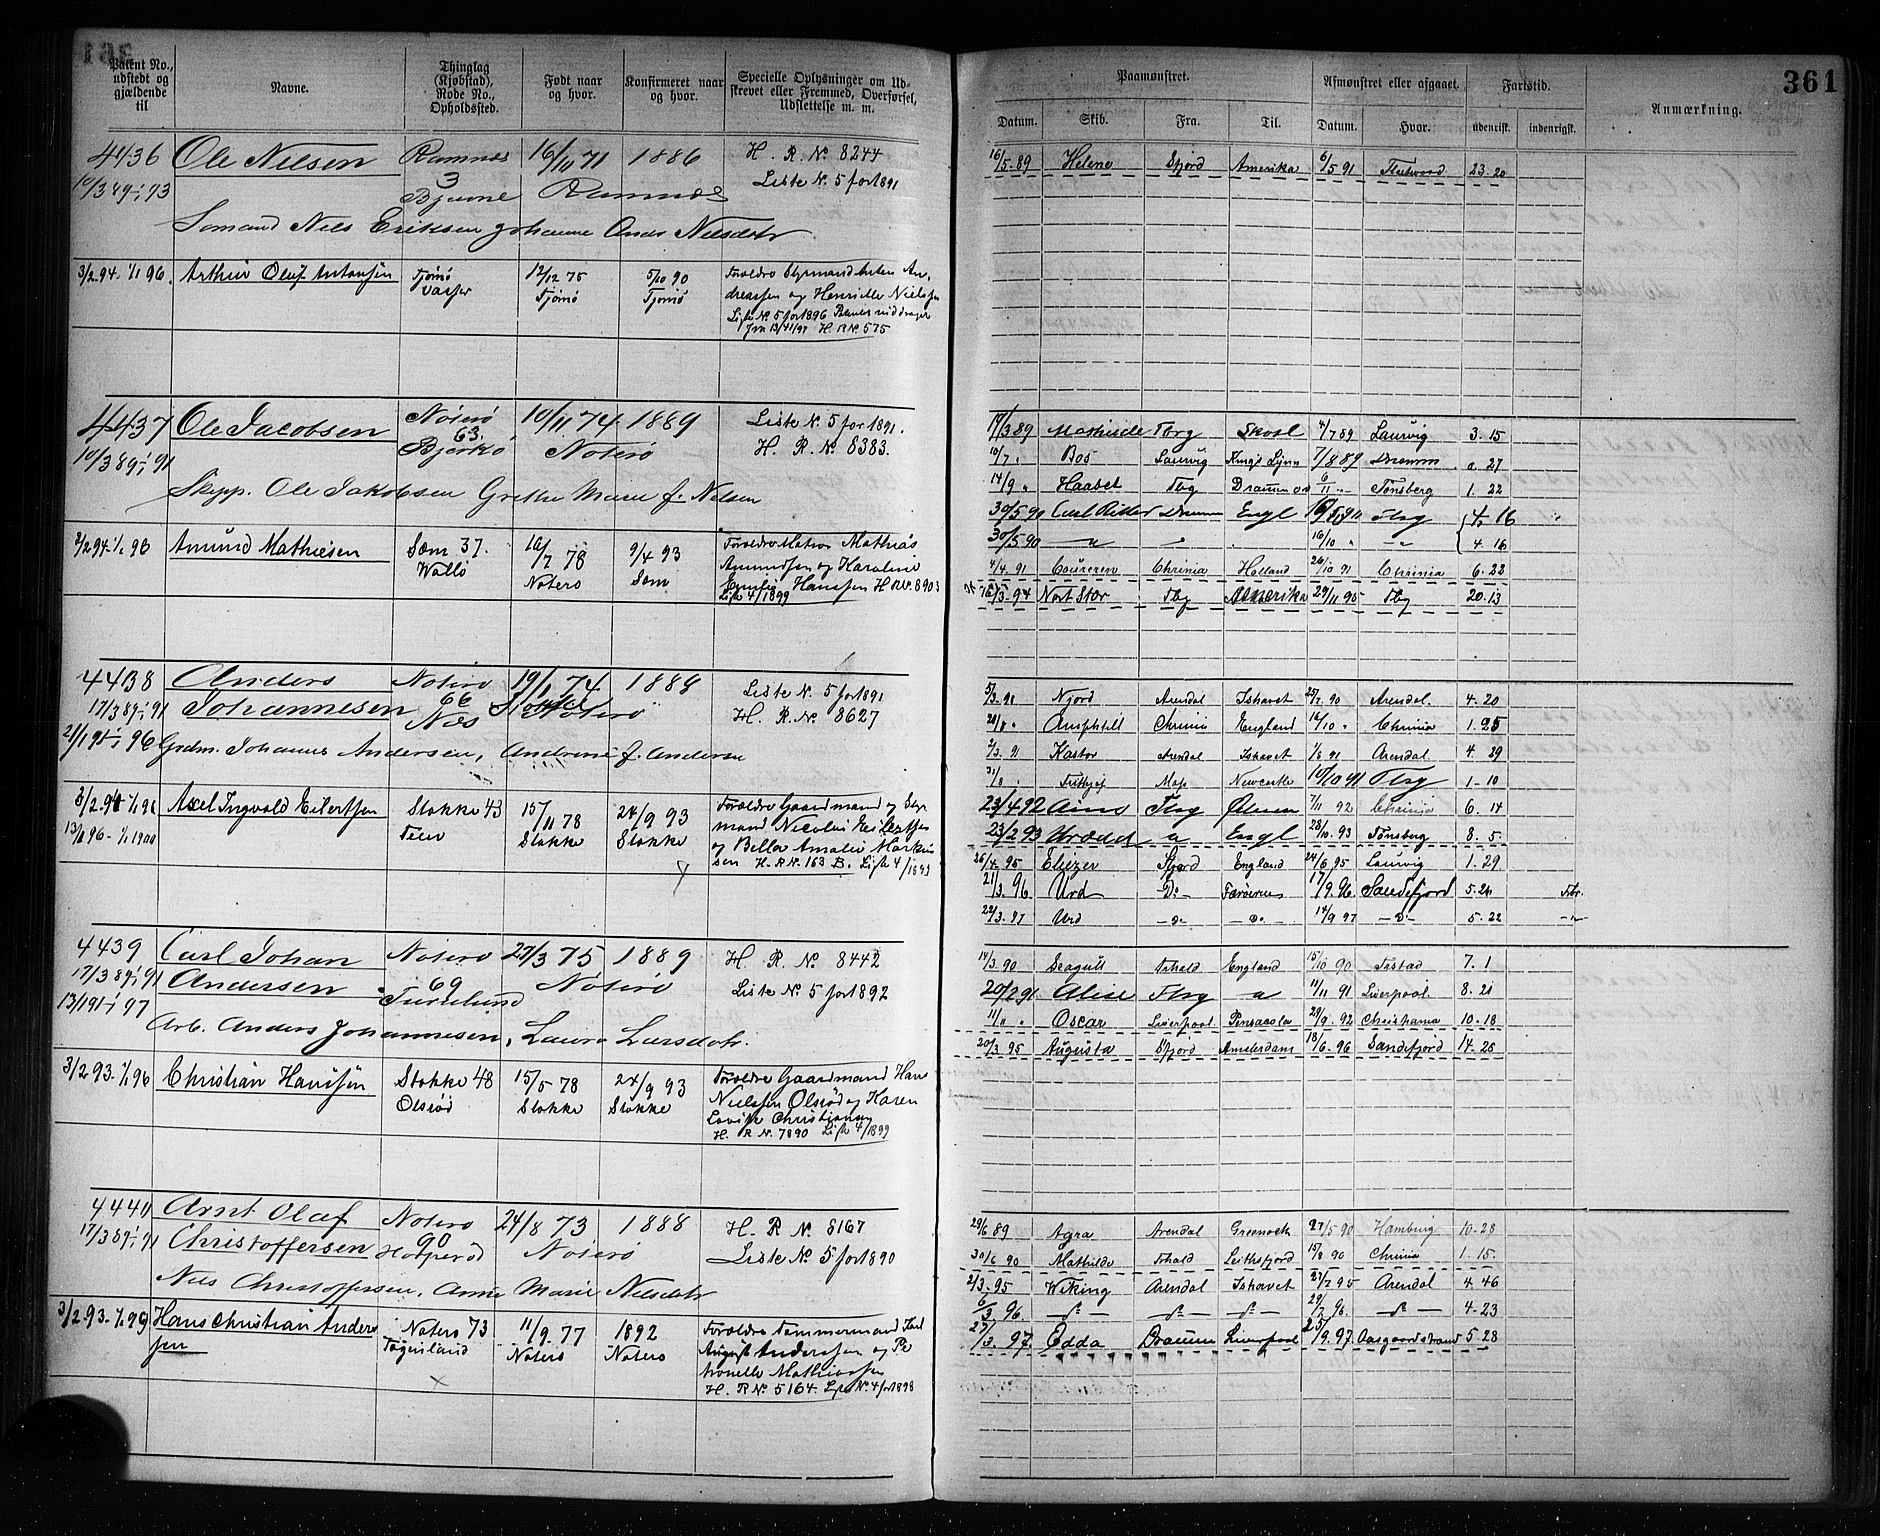 361
Patent No., udstedt og gjældende til
Navne.
Thinglag (Kjøbstad), Rode No., Opholdssted.
Født naar og hvor.
Konfirmeret naar og hvor.
Specielle Oplysninger om Udskrevet eller Fremmed, Overførsel, Udslettelse m. m.
Paamønstret.
Afmønstret eller afgaaet.
Fartstid.
Anmærkning.
Datum. Skib. Fra. Til. Datum. Hvor. udenrigsk. indenrigsk.
4436 Ole Nielsen Ramnæs 16/11 71 1886 H. R. No 8244
10/3 89-1/1 93 3 Bjuvne Ramnæs Liste N. 5 for 1891
Sømand Nils Eriksen Johanne Andr. Nilsdatr
16/5-89 Helene Sfjord Amerika 6/5 91 Fleetwood 23-20
3/2 94-1/1 96. Arthur Oluf Antonsen Tjømø 12/12 75 5/10 90 Forældre Styrmand Anton An-
Vasser Tjømø Tjømø dreassen og Henriette Nielsen
Liste N. 5 for 1896
H. R N. 575
4437 Ole Jacobsen Nøterø 10/11 74. 1889 Liste N. 5 for 1891.
10/3 89-1/1 91 63. Bjerkø Nøterø H. R. No 8383.
Skipp. Ole Jakobsen Grethe Marie f. Nilsen
17/3 89 Mathilde Tbrg 4/7 89 Laurvig 3-15
10/7 " Bos Laurvig Kings Lynn 7/8 89 Dramm 0-27
14/9 " Haabet Tbg Drammen 6/11 "- Tønsberg 1. 22
30/5 90 Carl Ritter Dramm Engl Tbrg 4-16
30/5 90 — " — 16/10 " - " - 4. 16
4/4. 91 Chrinia Holland 26/10 91 Chrinia 6. 22
3. 94 Nort Star Tbg Amerika 29/11 95 Tbg 20-13
3/2 94-1/1 96 Amund Mathiesen Sæm 37. 16/7 78 9/4 93 Forældre Matros Mathias
Vallø Nøterø Sem Amundsen og Karoline
Emilie Hanssen H R N. 8903
Liste 4/1899
4438 Anders Nøterø 19/1 74 1888 Liste N. 5 for 1891
17/3 89-1/1 91 Johannesen 66 Næs Nøterø H. R. No 8627
21/1 91-1/1 96 Grdm. Johannes Andersen, Andrine f. Andersen
5/3. 91 Njord Arendal Ishavet 25/7. 90 Arendal. 4-20
20/8 " Amphitrit Chrinia England 14/10 " Chrinia 1.25
2/3. 91 Kastor Arendal Ishavet 1/6 91 Arendal 4. 29
31/8 " Frithjof Moss Newcastle 10/10 91 Tbrg 1-10
23/4 92 Tbrg 7/11 92 Chrinia 6. 14
23/2 93 Urædd " Engl 28/10. 93 Tønsberg 8. 5.
26/4. 95 Eliezer Sfjord England 24/6 95 Laurvig 1. 29
21/3. 96 Urd - Do - Færøerne 17/9. 96 Sandefjord 5-24
22/3. 97 Urd - Do - - Do - 14/9 97 - Do - 5. 22
3/2. 94 1/1 96 Axel Ingvald Eilertsen Stokke 43 15/11 78 24/9 93 Forældre Gaardmand og Styr
13/1 96-1/1 1900 Feen Stokke Stokke mand Nicolai Eilertsen
og Belle Amalie Markus
sen H. R N. 163 B. Liste 4/1899
4439 Carl Johan Nøterø 27/3 75 1889 H. R. No. 8442
17/3 89-1/1 91 Andersen 69 Nøterø Liste No. 5 for 1892
13/1 91-1/1 97
Arb. Anders Johannesen, Laura Larsdatr.
14/3. 90 Seagull Frhald England 15/10 90 Frstad 7. 1
20/2 91 Alice Tbrg " 11/11 91 Liverpool. 8. 21
11/11 " Oscar Liverpool Pensacola 29/9. 92 Christiania 10-18
20/3. 95 Augusta Sfjord Amsterdam 18/6-96 Sandefjord 14-25
3/2 93-1/1 96 Christian Hanssen Stokke 48 15/5 78 24/9 93 Forældre Gaardmand Hans
Olsrød Stokke Stokke Nielssen Olsrød og Karen
Lovise Christiansen
H. R N. 7890 Liste 4/1899
4440 Arnt Olaf Nøterø 24/8 73 1888 H. R No. 8167
17/3 89-1/1 91 Christoffersen 90 Nøterø Liste No. 5 for 1890
Nils Christoffersen, Anne Marie Nilsdatr
29/6 89 Agra Arendal Greenock 27/5 90 Hamburg 10-28
30/6 90 Mathilde Frhald 15/8 90 Chrinia 1. 15.
2/3. 95 Wiking Arendal Ishavet 27/7 95 Arendal 4. 46
6/3 96. 29/7. 96. 4-23
3. 97. Edda Dramm Liverpool 25/9. 97. Aasgaardstrand 5-28
3/2. 93. 1/1 99 Hans Christian Anders Nøterø 73 11/9. 77 1892 Forældre Tømmermand Karl
sen Tøgersland Nøterø Nøterø August Anderssen og Pe
tronelle Mathiassen
H. R No. 5164. Liste N. 4 for 1898